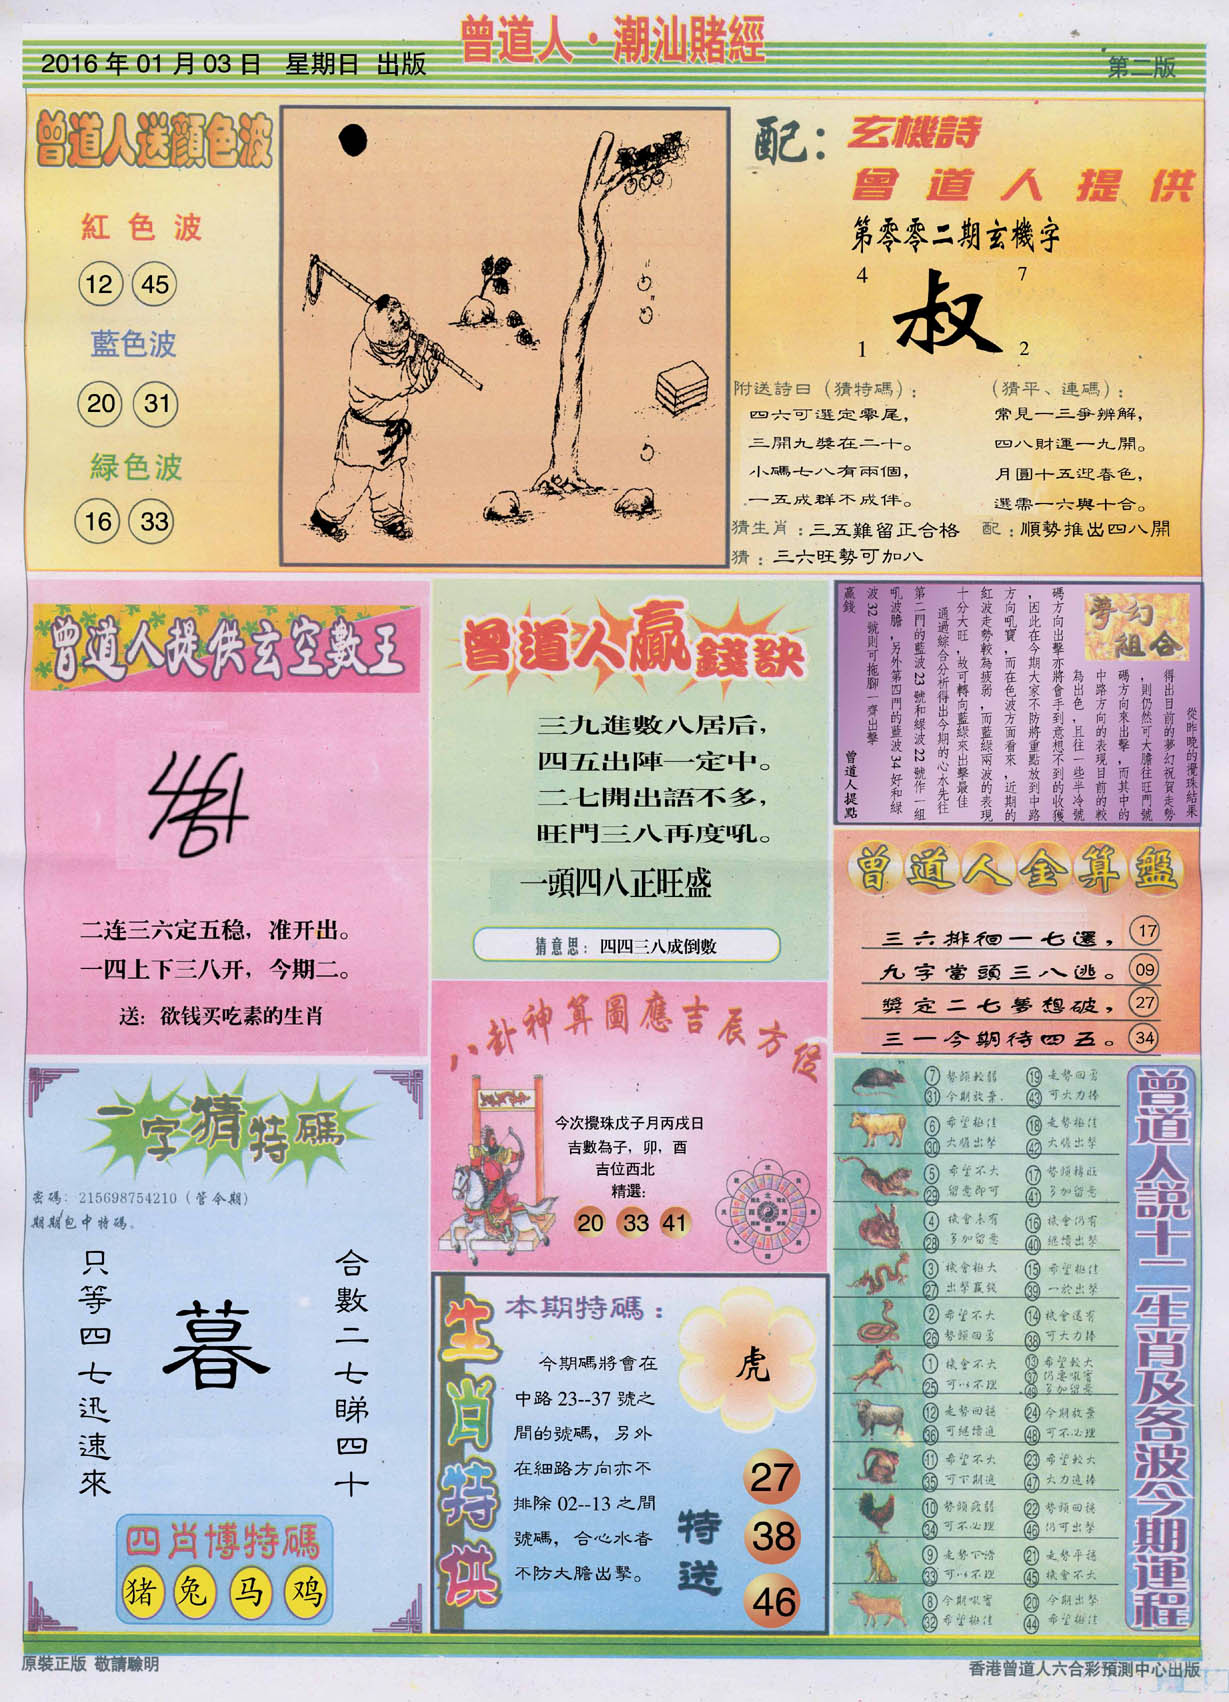 曾道人·潮汕賭經
2016 年 01 月 03 日 星期日 出版
第二版
曾道人送顏色波
紅色波
12 45
藍色波
20 31
緑色波
16 33
配：玄機詩
曾道人提供
第零零二期玄機字
4 7
叔
1 2
附送詩曰（猜特碼）：
四六可選定零尾，
三開九獎在二十。
小碼七八有兩個，
一五成群不成伴。
（猜平、連碼）：
常見一三爭辨解，
四八財運一九開。
月圓十五迎春色，
選需一六與十合。
猜生肖：三五難留正合格
配：順勢推出四八開
猜：三六旺勢可加八
曾道人提供玄空數王
二连三六定五稳，准开出。
一四上下三八开，今期二。
送：欲钱买吃素的生肖
曾道人贏錢訣
三九進數八居后，
四五出陣一定中。
二七開出語不多，
旺門三八再度吼。
一頭四八正旺盛
猜意思：四四三八成倒數
夢幻組合
從昨晚的攪珠結果
得出目前的夢幻祝賀走勢
，則仍然可大膽往旺門號
碼方向來出擊，而其中的
中路方向的表現目前的較
為出色，且往一些半冷號
碼方向出擊亦將會手到意想不到的收獲
，因此在今期大家不防將重點放到中路
方向吼寶，而在色波方面看來，近期的
紅波走勢較為疲弱，而藍綠兩波的表現
十分大旺，故可轉向藍綠來出擊最佳
通過綜合分析得出今期的心水先往
第二門的藍波 23 號和綠波 22 號作一組
吼波膽，另外第四門的藍波 34 好和綠
波 32 號則可拖腳一齊出擊
贏錢
曾道人提點
曾道人金算盤
三六排徊一七選， 17
九字當頭三八逃。 09
獎定二七夢想破， 27
三一今期待四五。 34
一字猜特碼
密碼：215698754210（管今期）
期期包中特碼。
合數二七睇四十
暮
只等四七迅速來
四肖博特碼
猪 兔 马 鸡
八卦神算圖應吉辰方位
今次攪珠戊子月丙戌日
吉數為子，卯，酉
吉位西北
精選：
20 33 41
生肖特供
本期特碼：
今期碼將會在
中路 23--37 號之
間的號碼，另外
在細路方向亦不
排除 02--13 之間
號碼，合心水者
不防大膽出擊。
虎
特送
27
38
46
曾道人説十二生肖及各波今期運程
7 勢頭較弱 19 走勢回勇
31 今期放棄. 43 可大力捧
6 希望極佳 18 走勢極佳
30 大膽出擊 42 大膽出擊
5 希望不大 17 勢頭轉旺
29 留意即可 41 多加留意
4 機會未有 16 機會仍有
28 多加留意 40 繼續出擊
3 機會極大 15 希望極佳
27 出擊贏錢 39 一於出擊
2 希望不大 14 機會還有
26 勢頭回勇 38 可大力捧
1 機會不大 13 希望較大
25 可以不理 37 仍要吼實
49 多加留意
12 走勢回穩 24 今期放棄
36 可繼續追 48 可不必理
11 希望不大 23 希望較大
35 可下期追 47 大力追捧
10 勢頭疲弱 22 勢頭回穩
34 可不必理 46 仍可出擊
9 走勢下滑 21 走勢平穩
33 可以不理 45 機會不大
8 今期吼實 20 今期出擊
32 希望極佳 44 希望極佳
原裝正版 敬請驗明
香港曾道人六合彩預測中心出版